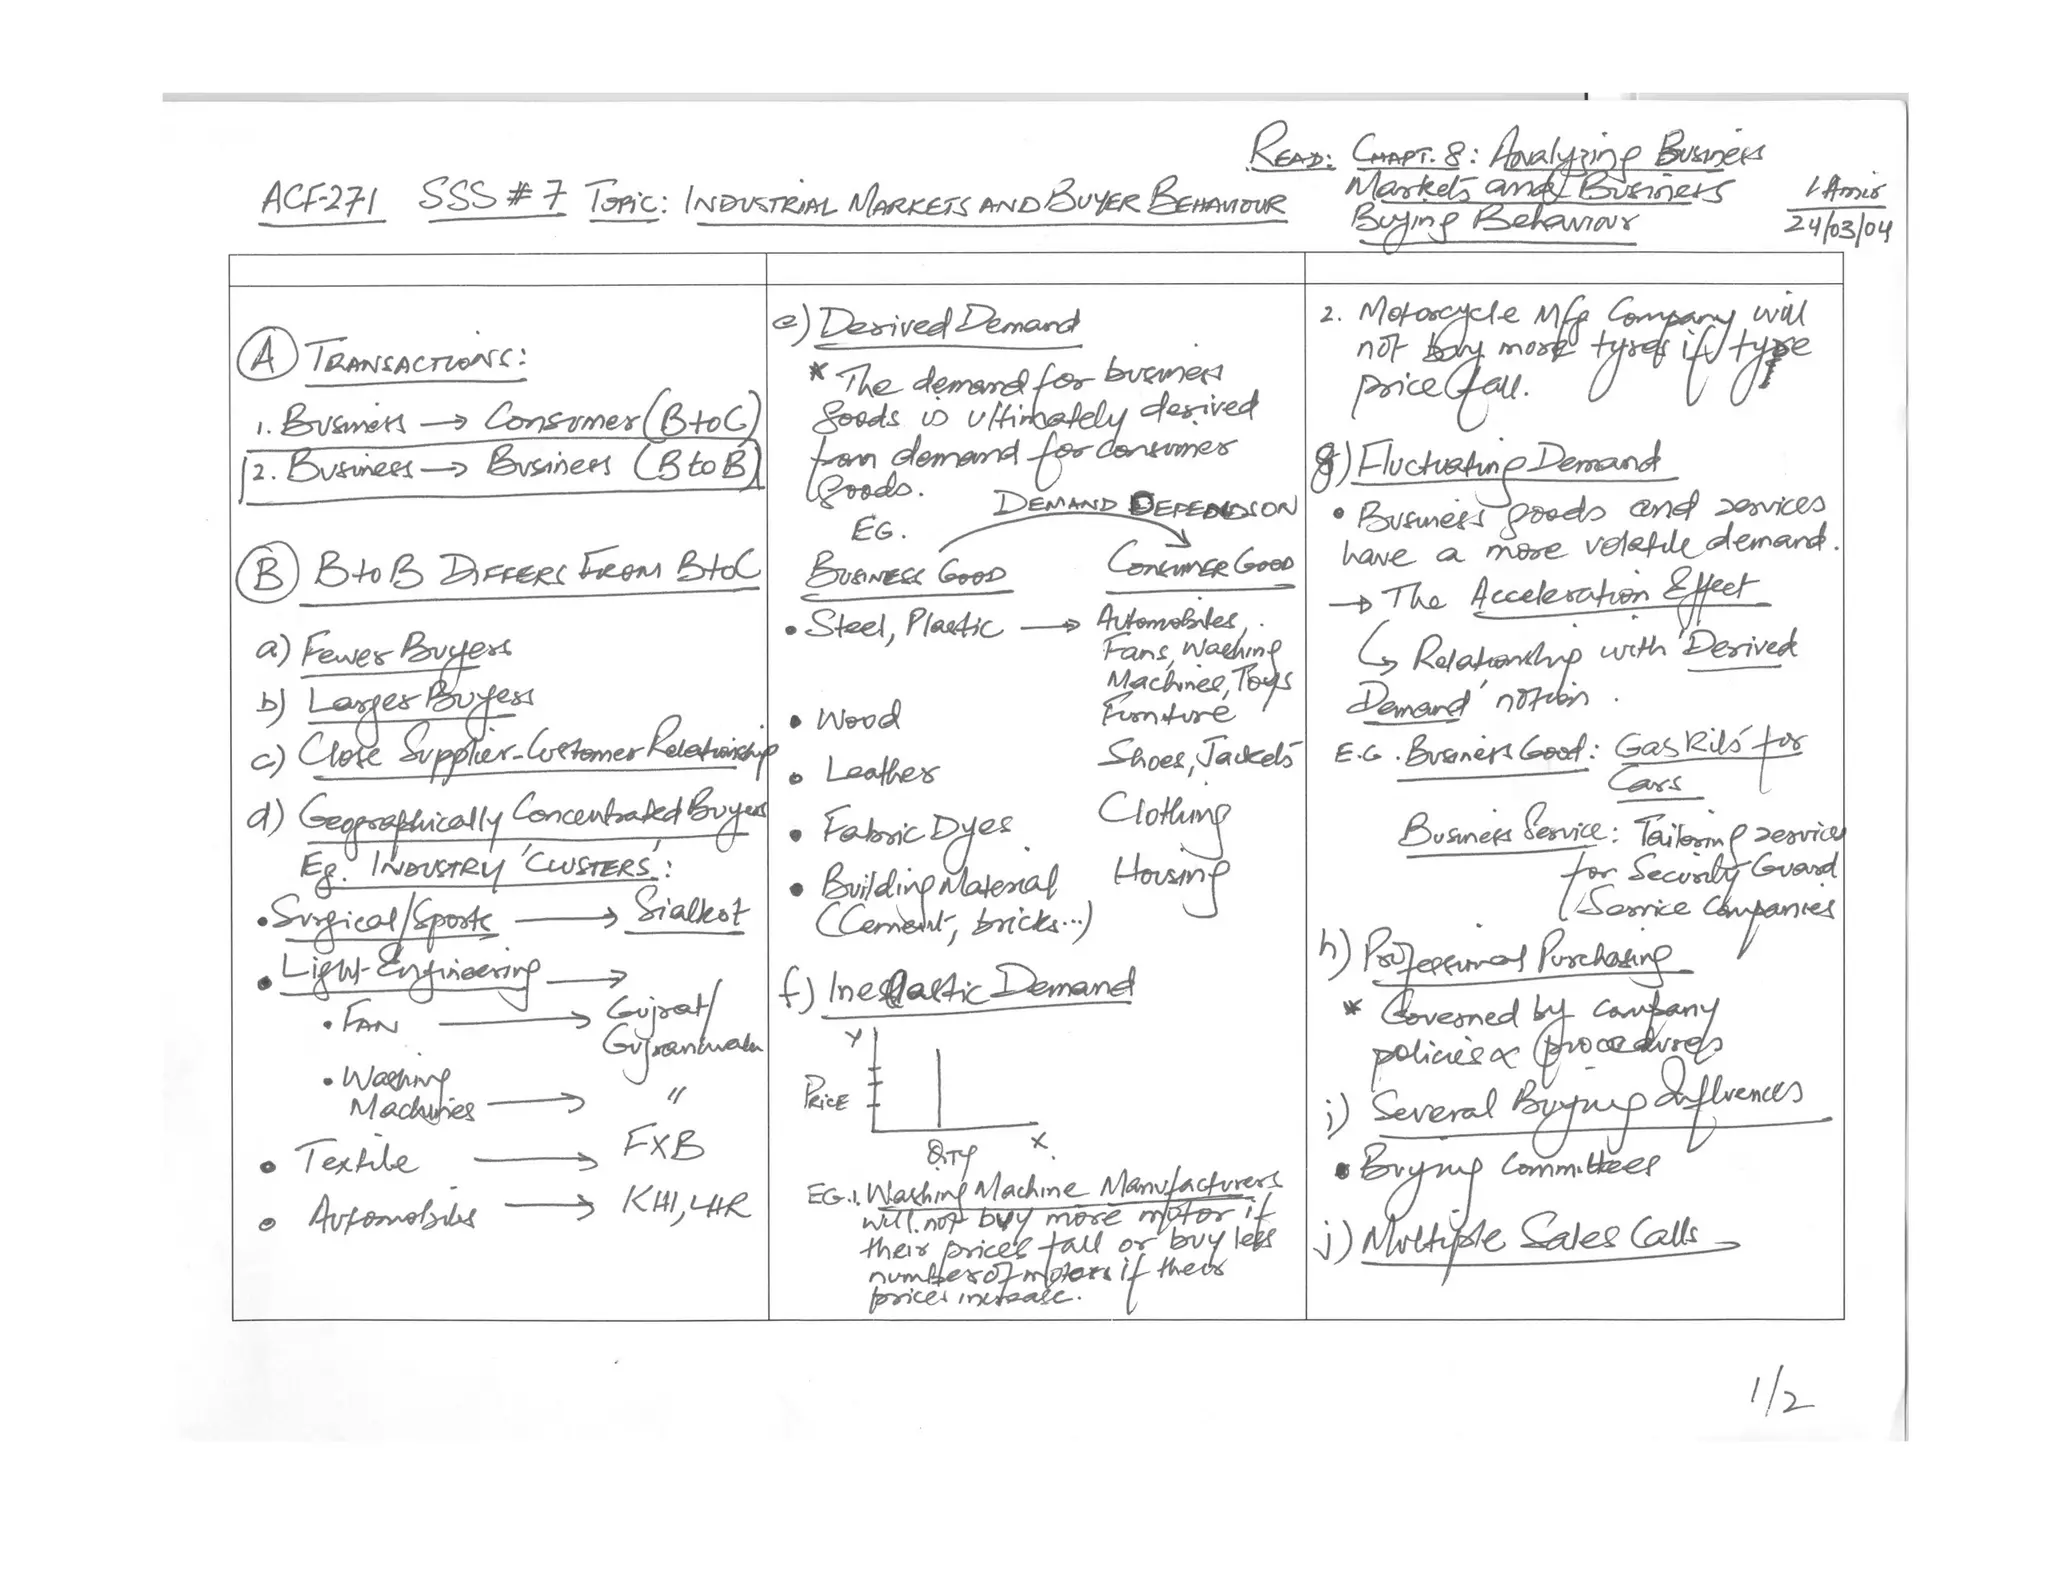 READ: CHAPT. 8: Analyzing Business
Markets and Business
Buying Behaviour
ACF-271 SSS # 7 TOPIC: INDUSTRIAL MARKETS AND BUYER BEHAVIOUR
24/03/04
A TRANSACTIONS:
1. Business → Consumer (B to C)
2. Business → Business (B to B)
B B to B DIFFERS FROM B to C
a) Fewer Buyers
b) Larger Buyers
c) Close Supplier-Customer Relationship
d) Geographically Concentrated Buyers
Eg. INDUSTRY 'CLUSTERS':
• Surgical/Sports → Sialkot
• Light-Engineering →
• FAN → Gujrat/
Gujranwala
• Washing
Machines → "
• Textile → FXB
• Automobiles → KHI, LHR
e) Derived Demand
* The demand for business
goods is ultimately derived
from demand for consumer
goods.
DEMAND DEPENDS ON
EG.
BUSINESS GOOD CONSUMER GOOD
• Steel, Plastic → Automobiles,
Fans, Washing
Machines, Toys
• Wood Furniture
• Leather Shoes, Jackets
• Fabric Dyes Clothing
• Building Material Housing
(Cement, bricks...)
f) Inelastic Demand
Y
PRICE
QTY X
EG.1. Washing Machine Manufacturers
will not buy more motor if
their prices fall or buy less
number of motors if their
prices increase.
2. Motorcycle Mfg Company will
not buy more tyres if tyre
price fall.
g) Fluctuating Demand
• Business goods and services
have a more volatile demand.
→ The Acceleration Effect
↳ Relationship with 'Derived
Demand' notion.
E.G. Business Good: Gas Kits for
Cars
Business Service: Tailoring services
for Security Guard
Service Companies
h) Professional Purchasing
* Governed by company
policies & procedures
i) Several Buying Influences
• Buying Committees
j) Multiple Sales Calls
1/2